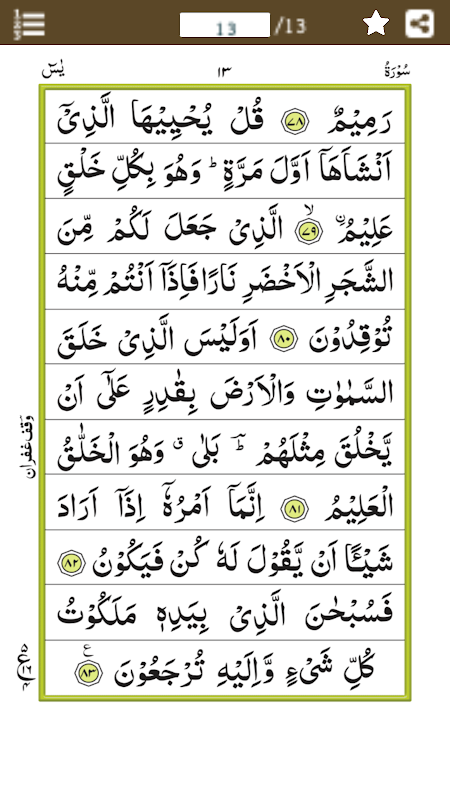 13 /13
سُوْرَةُ ١٣ يٰسٓ
رَمِيْمٌ ﴿٧٨﴾ قُلْ يُحْيِيْهَا الَّذِيْۤ
اَنْشَاَهَاۤ اَوَّلَ مَرَّةٍ ؕ وَهُوَ بِكُلِّ خَلْقٍ
عَلِيْمُ ۨ ﴿٧٩﴾ ۙ الَّذِيْ جَعَلَ لَكُمْ مِّنَ
الشَّجَرِ الْاَخْضَرِ نَارًا فَاِذَاۤ اَنْتُمْ مِّنْهُ
تُوْقِدُوْنَ ﴿٨٠﴾ اَوَلَيْسَ الَّذِيْ خَلَقَ
السَّمٰوٰتِ وَالْاَرْضَ بِقٰدِرٍ عَلٰۤى اَنْ
يَّخْلُقَ مِثْلَهُمْ ؕ بَلٰى ۗ وَهُوَ الْخَلّٰقُ
الْعَلِيْمُ ﴿٨١﴾ اِنَّمَاۤ اَمْرُهٗۤ اِذَاۤ اَرَادَ
شَيْـًٔا اَنْ يَّقُوْلَ لَهٗ كُنْ فَيَكُوْنُ ﴿٨٢﴾
فَسُبْحٰنَ الَّذِيْ بِيَدِهٖ مَلَكُوْتُ
كُلِّ شَيْءٍ وَّاِلَيْهِ تُرْجَعُوْنَ ﴿٨٣﴾ ع
وقف غفران